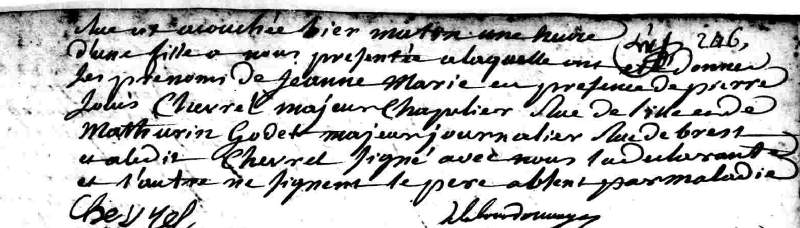 Rue est acouchée hier matin une heure
d'une fille a nous presentée a laquelle ont été donné 246,
les prenoms de jeanne Marie en presence de pierre
Louis Chevrel majeur Chapelier Rue de l'isle et de
Mathurin Godet majeur journalier Rue de brest
et aledit Chevrel signé avec nous la declarante
et l'autre ne signent le pere absent par maladie
Chevrel